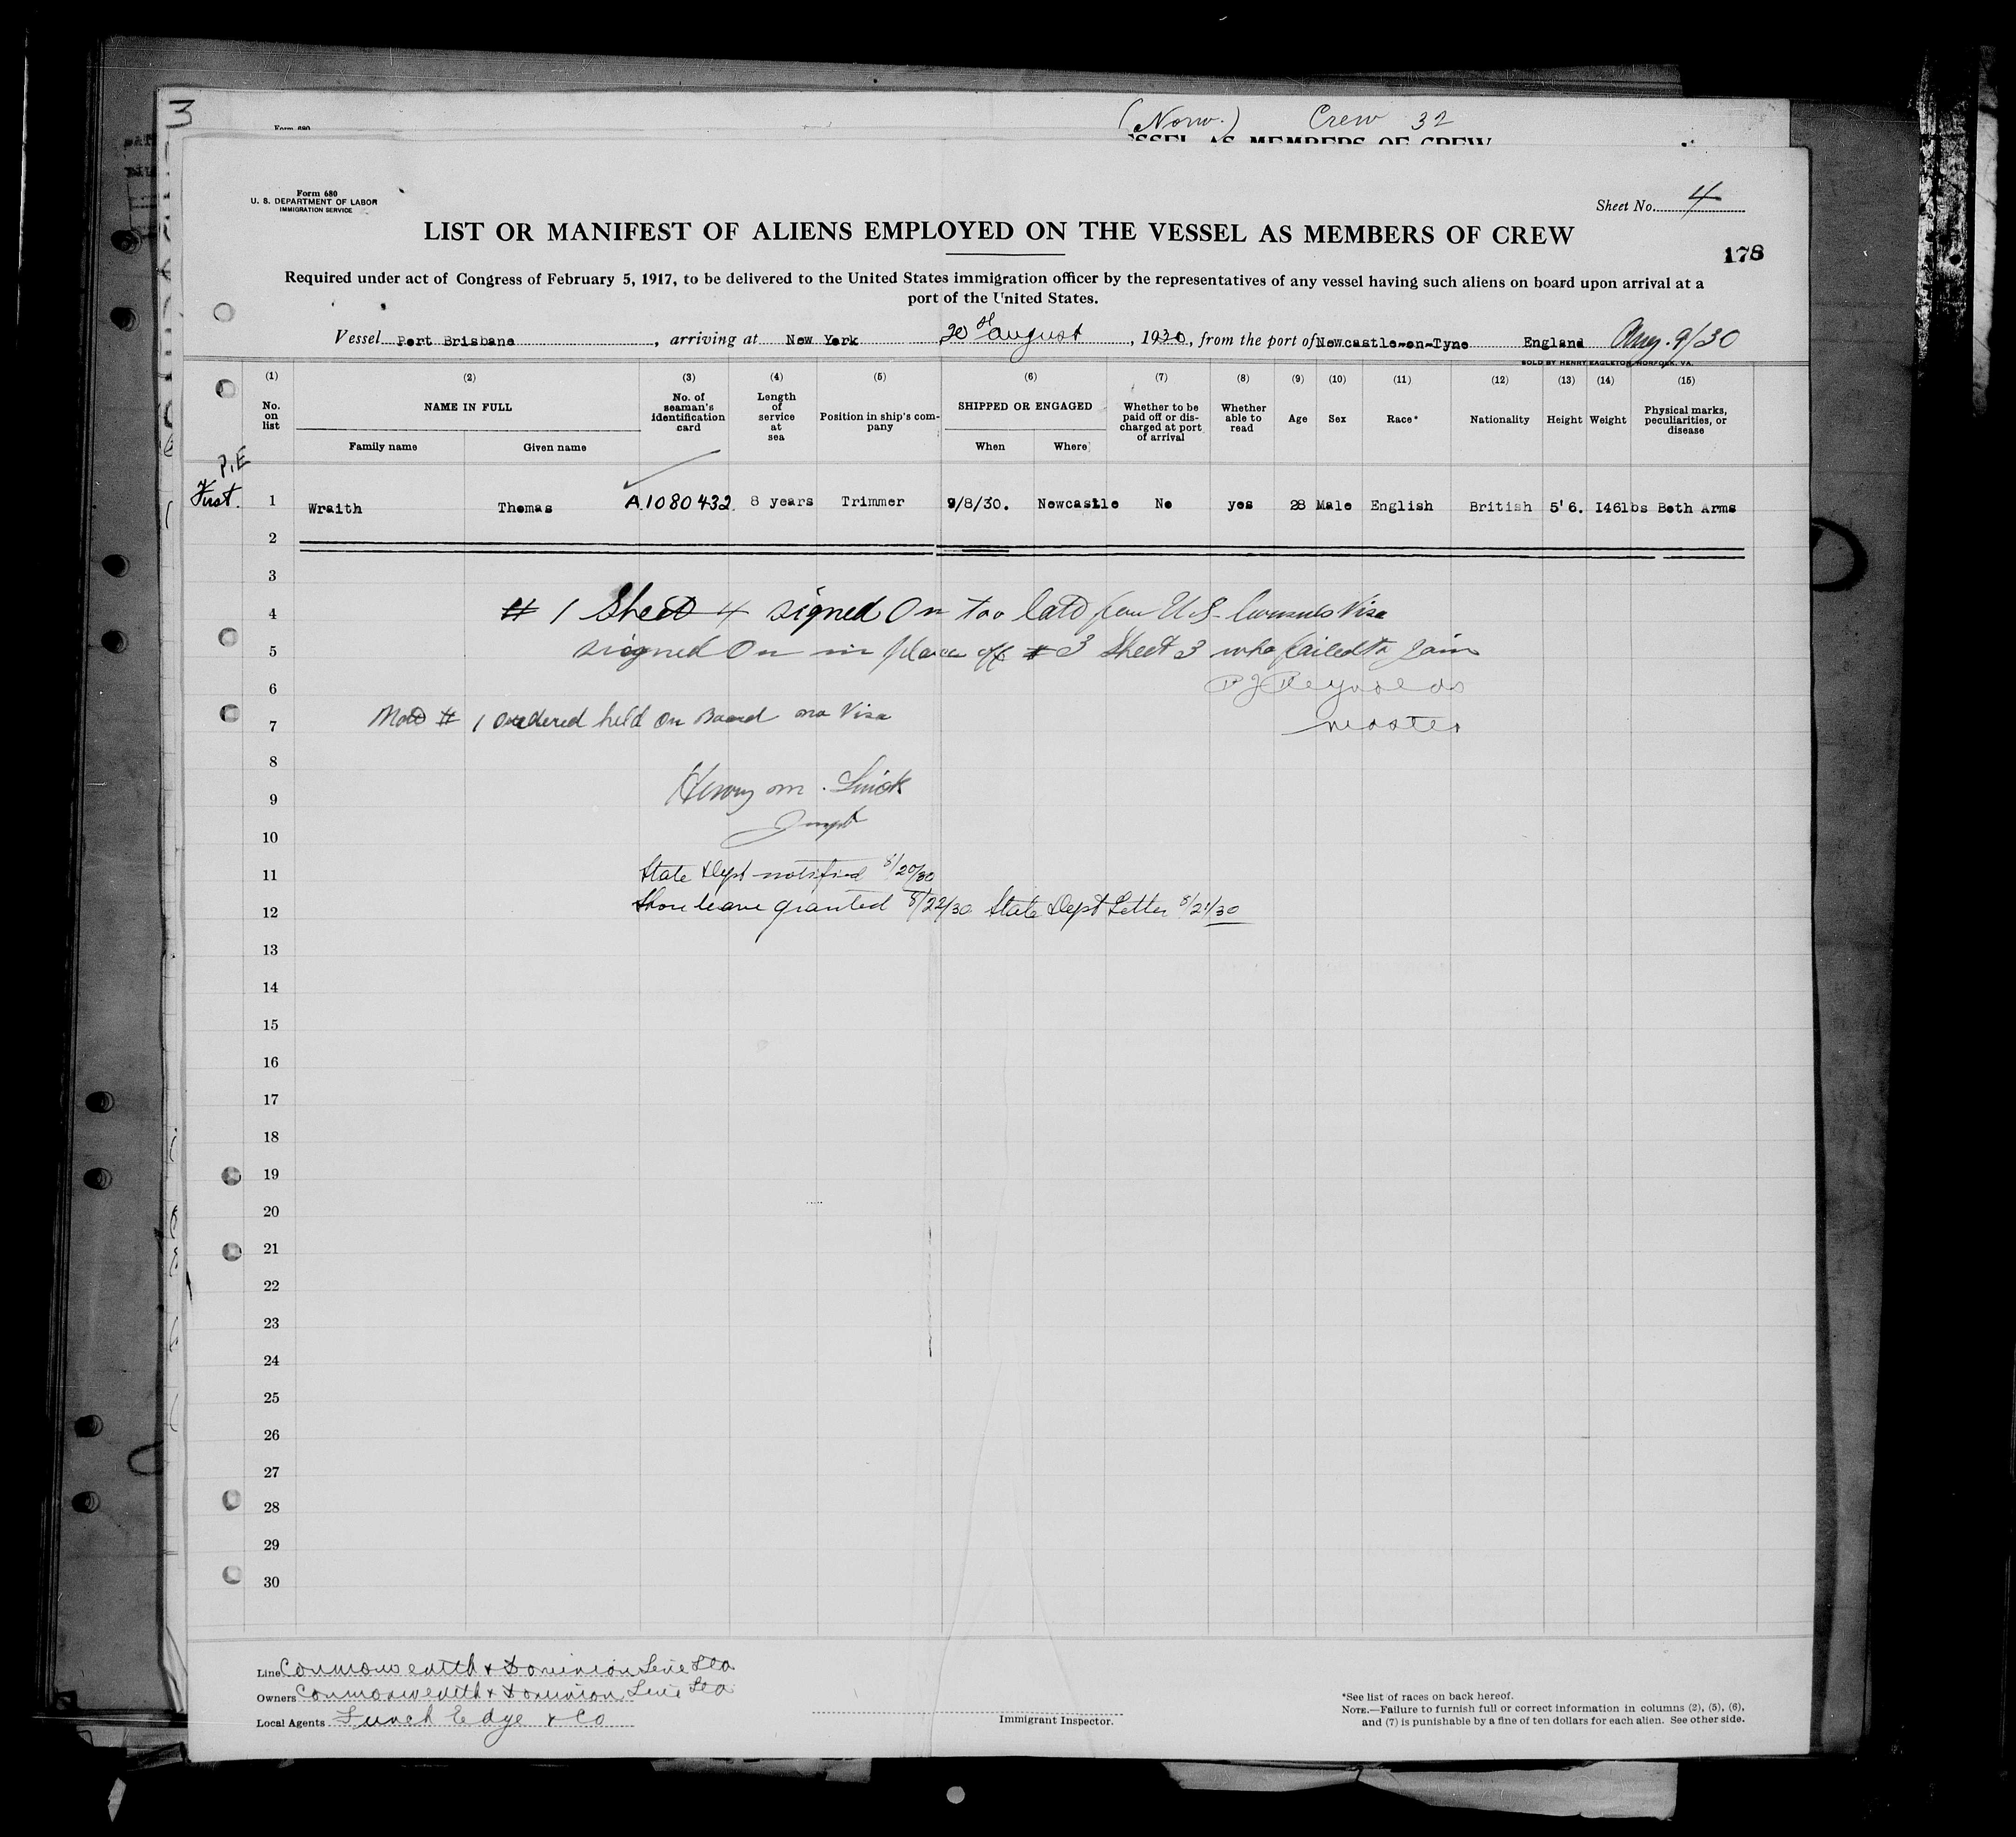 3
(Norw.) Crew 32
Form 680
U. S. DEPARTMENT OF LABOR
IMMIGRATION SERVICE
Sheet No. 4
LIST OR MANIFEST OF ALIENS EMPLOYED ON THE VESSEL AS MEMBERS OF CREW
178
Required under act of Congress of February 5, 1917, to be delivered to the United States immigration officer by the representatives of any vessel having such aliens on board upon arrival at a
port of the United States.
Vessel Port Brisbane, arriving at New York 20th August, 1930, from the port of Newcastle-on-Tyne England Aug. 9/30
SOLD BY HENRY EAGLETON, NORFOLK, VA.
(1) (2) (3) (4) (5) (6) (7) (8) (9) (10) (11) (12) (13) (14) (15)
No. on list NAME IN FULL No. of seaman's identification card Length of service at sea Position in ship's company SHIPPED OR ENGAGED Whether to be paid off or discharged at port of arrival Whether able to read Age Sex Race* Nationality Height Weight Physical marks, peculiarities, or disease
Family name Given name When Where
P.E
First. 1 Wraith Thomas A.1080432. 8 years Trimmer 9/8/30. Newcastle No yes 28 Male English British 5'6. 146lbs Both Arms
2
3
4 # 1 Sheet 4 signed On too late for U.S. Consuls Visa
5 signed On in place off # 3 Sheet 3 who failed to Join
6 P J Reynolds
7 # 1 Ordered held On Board no Visa master
8
9 Henry M.
10 Inspt
11 State Dept notified 8/20/30
12 Shore leave granted 8/22/30 State Dept Letter 8/21/30
13
14
15
16
17
18
19
20
21
22
23
24
25
26
27
28
29
30
Line Commonwealth & Dominion Line Ltd
Owners Commonwealth & Dominion Line Ltd
Local Agents Funch Edye & Co
Immigrant Inspector.
*See list of races on back hereof.
NOTE.—Failure to furnish full or correct information in columns (2), (5), (6),
and (7) is punishable by a fine of ten dollars for each alien. See other side.